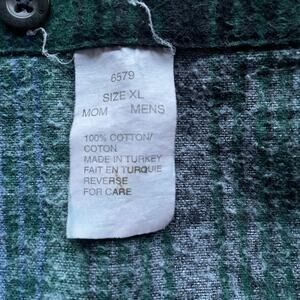 6579
SIZE XL
MOM MENS
100% COTTON/
COTON
MADE IN TURKEY
FAIT EN TURQUIE
REVERSE
FOR CARE